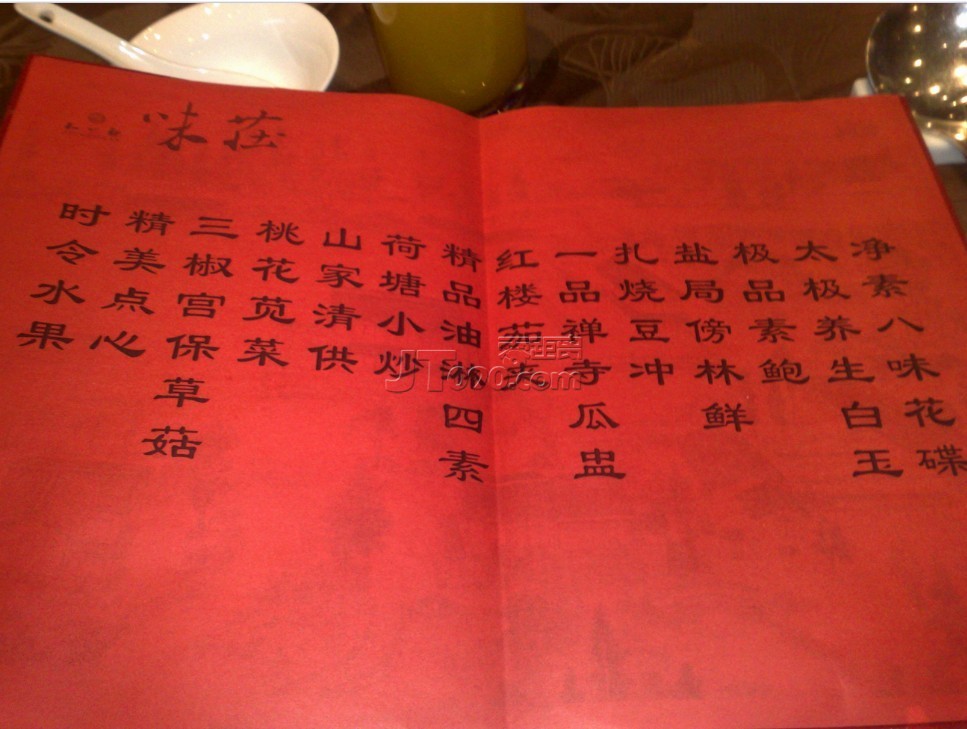 味莊
净素八味花碟
太极养生白玉
极品素鲍
盐局傍林鲜
扎烧豆冲
一品禅寺瓜盅
红楼茄夹
精品油淋四素
荷塘小炒
山家清供
桃花苋菜
三椒宫保草菇
精美点心
时令水果
JT000.com